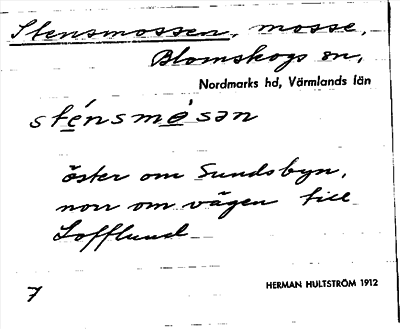 Stensmossen, mosse,
Blomskogs sn,
Nordmarks hd, Värmlands län
sténsmǫ̀sən
öster om Sundsbyn,
norr om vägen till
Lofflund
7
HERMAN HULTSTRÖM 1912